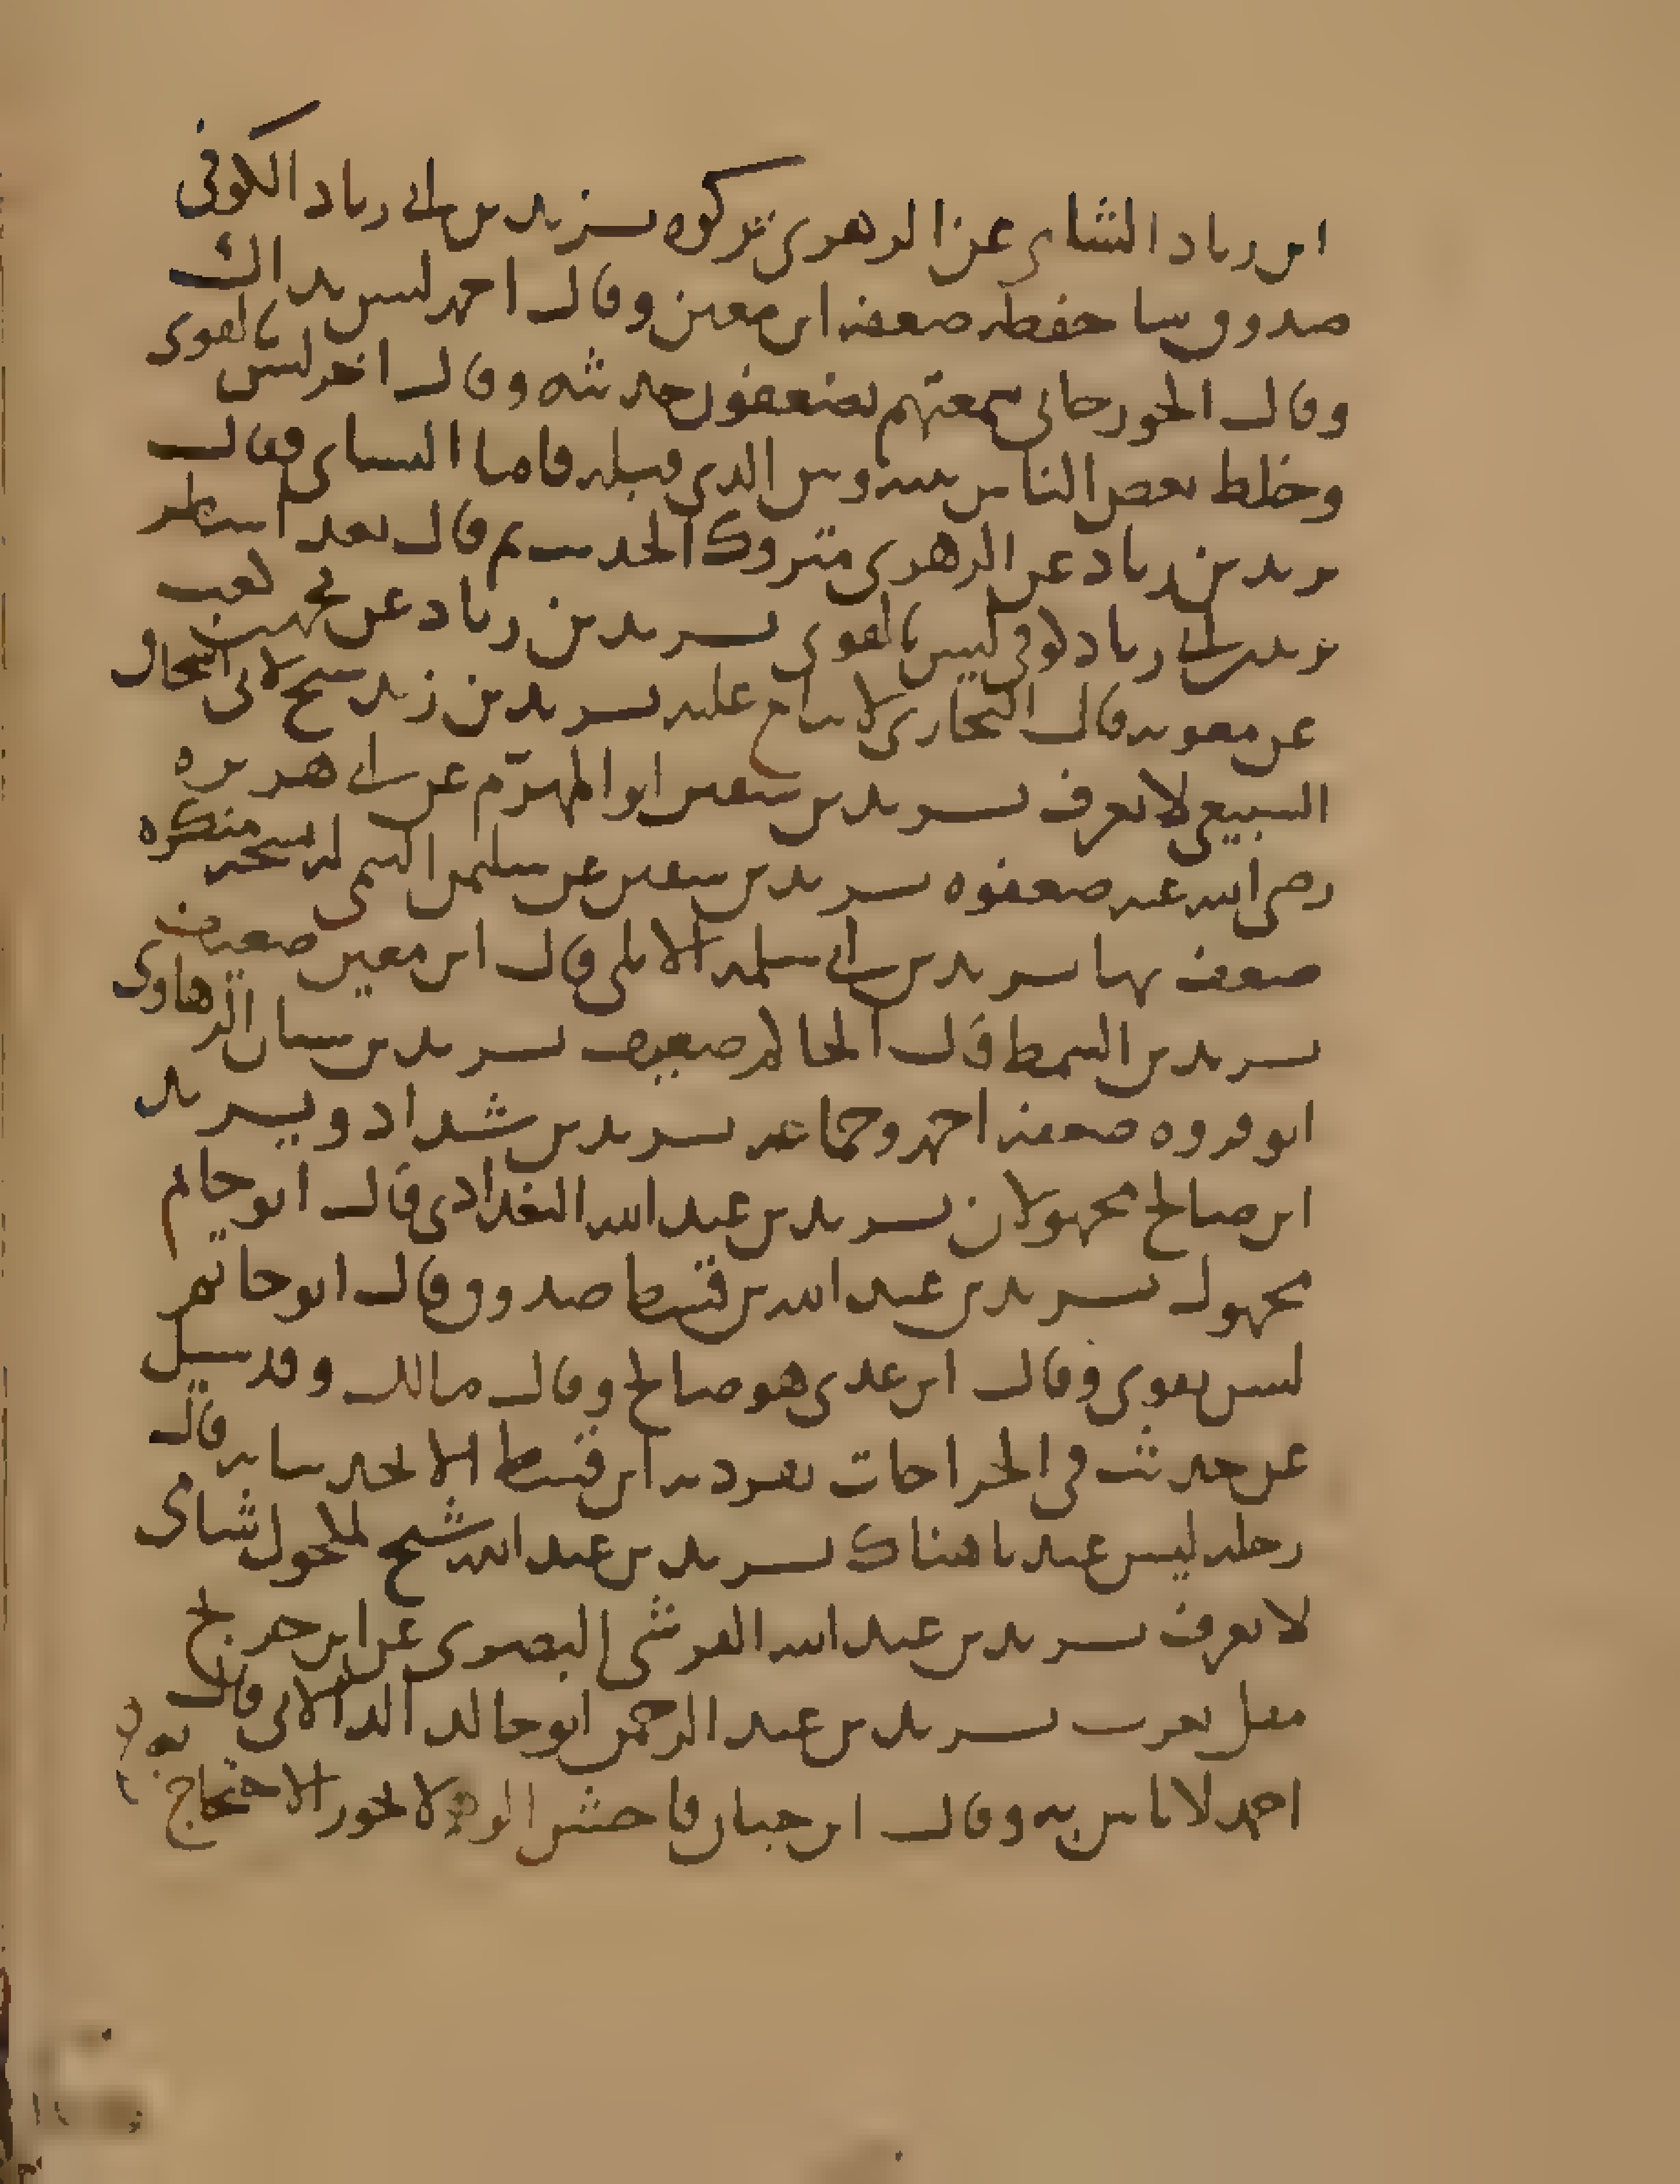 ابن زياد الشامي عن الزهري تركوه يزيد بن ابي زياد الكوفي
صدوق سا حفظه ضعفه ابن معين وقال احمد ليس بذاك
وقال الجوزجاني سمعتهم يضعفون حديثه وقال اخر ليس بالقوي
وخلط بعض الناس بينه وبين الذي قبله فاما النساي فقال
يزيد بن زياد عن الزهري متروك الحديث ثم قال بعد اسطر
يزيد بن ابي زياد كوفي ليس بالقوي يزيد بن زياد عن محمد بن كعب
عن معوية قال البخاري لا يتابع عليه يزيد بن زيد شيخ لابي اسحاق
السبيعي لا يعرف يزيد بن سفين ابو المهزّم عن ابي هريره
رضي الله عنه ضعفوه يزيد بن سفين عن سليمن التيمي له نسخه منكره
ضعف بها يزيد بن ابي سلمه الايلي قال ابن معين ضعيف
يزيد بن السمط قال الحاكم ضعيف يزيد بن سنان الرهاوي
ابو فروه ضعفه احمد وجماعه يزيد بن شداد ويزيد
ابن صالح مجهولان يزيد بن عبد الله البغدادي قال ابو حاتم
مجهول يزيد بن عبد الله بن قسيط صدوق قال ابو حاتم
ليس بقوي وقال ابن عدي هو صالح وقال مالك وقد سيل
عن حديث في الجراحات تفرد به ابن قسيط الا نحدثنا به قال
رجله ليس عندنا هناك يزيد بن عبد الله شيخ لمكحول شامي
لا يعرف يزيد بن عبد الله القرشي البصري عن ابن جريج
مقل يغرب يزيد بن عبد الرحمن ابو خالد الدالاني قال
احمد لا باس به وقال ابن حبان فاحش الوهم لا يجوز الاحتجاج به